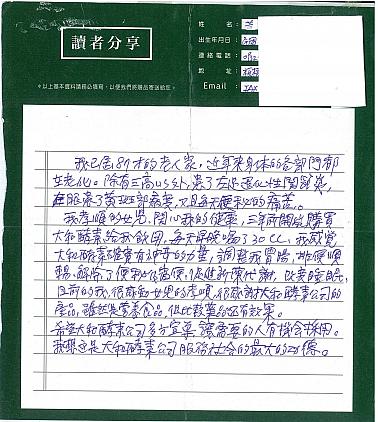 讀者分享
姓名：
出生年月日：
連絡電話：
地址：
Email：
＊以上基本資料請務必填寫，以便我們將贈品寄送給您。
我已是89才的老人家，近年來身体的各部門都
在老化。除有三高以外，患了左足退化性関節炎，
在眼患了黃斑部病変，又是每天便秘的痛苦。
我孝順的女兒，関心我的健康，三年前開始購買
大和酵素給我飲用，每天早晚喝了30CC，我感覺
大和酵素確實有神奇的力量，調整我胃腸，排便順
暢，解除了便秘的舊便，促進新陳代謝，以幸睡眠，
目前的我，很感動女兒的孝順，很感謝大和酵素公司的
產品，雖然是営養食品，但比教薬給還有效果。
希望大和酵素公司多方宣草，讓需要的人有機會採用。
我想這是大和酵素公司服務社會的最大的功德。